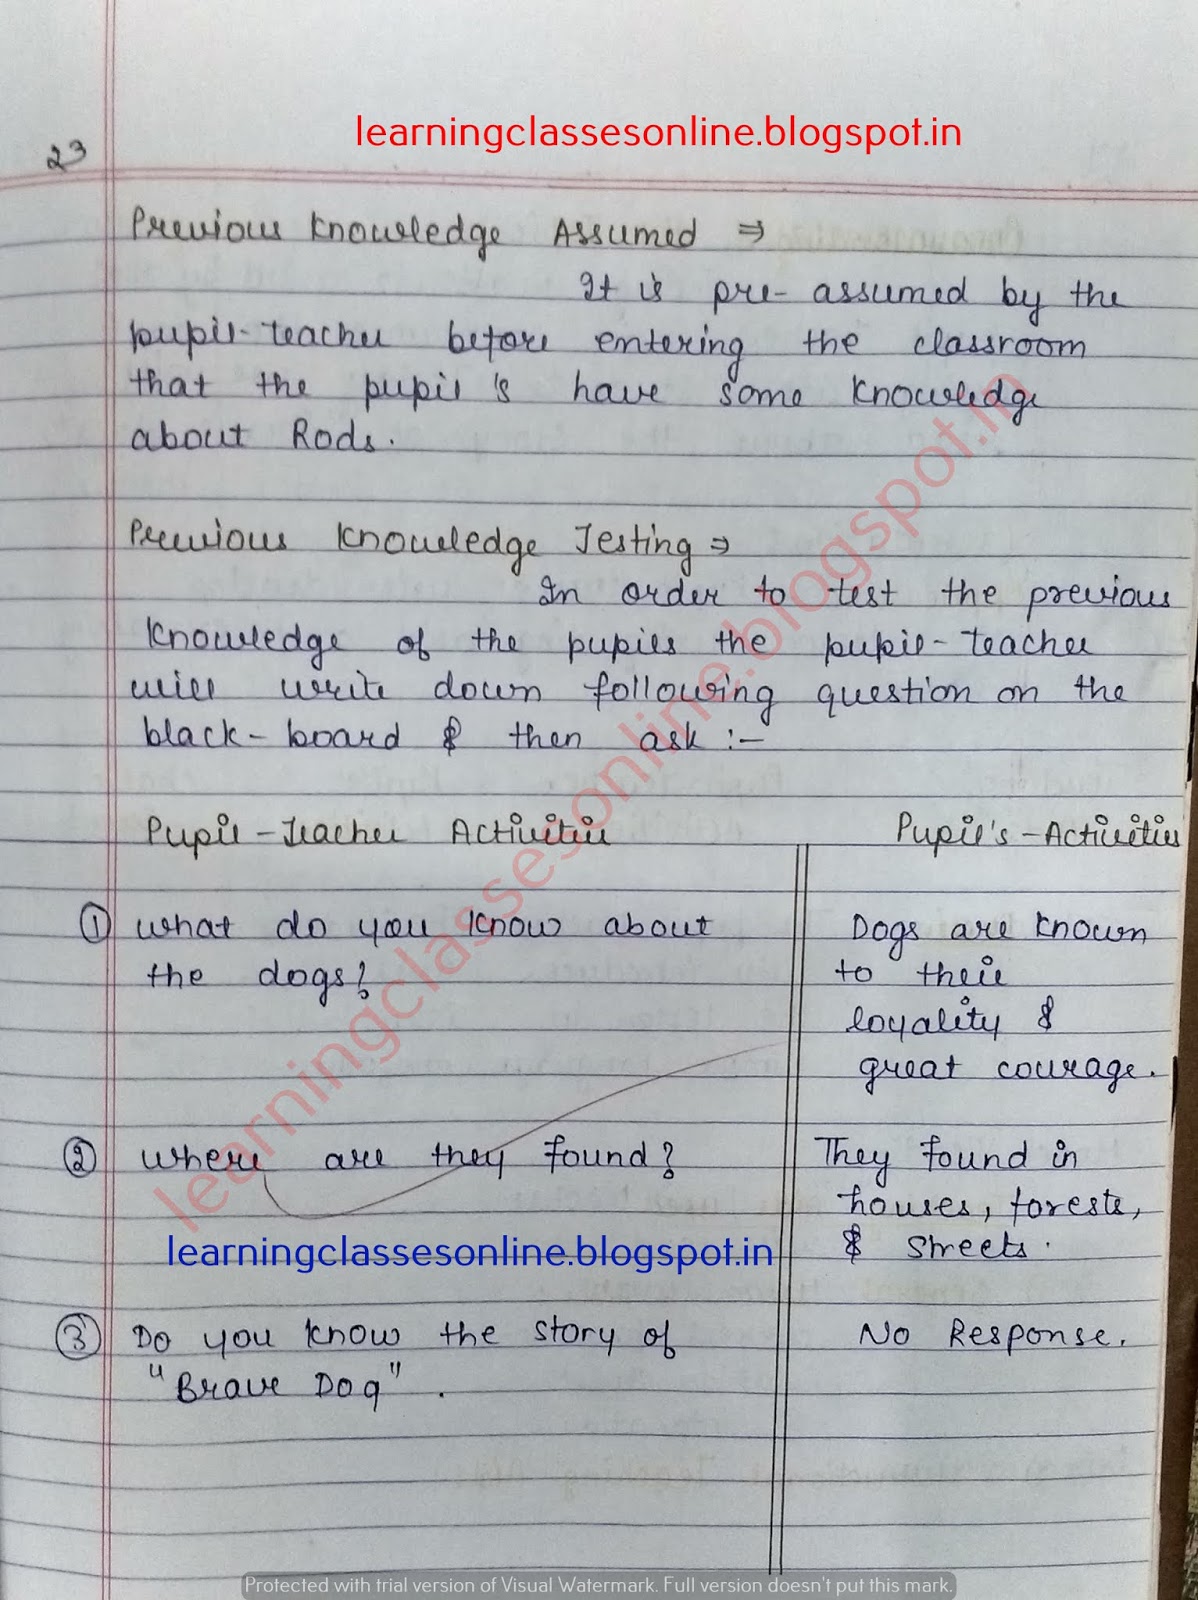 learningclassesonline.blogspot.in
23
Previous Knowledge Assumed ⇒
It is pre-assumed by the
pupil-teacher before entering the classroom
that the pupil's have some knowledge
about Rods.
Previous Knowledge Testing ⇒
In order to test the previous
knowledge of the pupils the pupil-teacher
will write down following question on the
black-board & then ask :-
Pupil-Teacher Activities
Pupil's-Activities
① What do you know about
the dogs?
Dogs are known
to their
loyality &
great courage.
② Where are they found?
They found in
houses, forests,
& streets.
learningclassesonline.blogspot.in
③ Do you know the story of
"Brave Dog".
No Response.
learningclassesonline.blogspot.in
Protected with trial version of Visual Watermark. Full version doesn't put this mark.